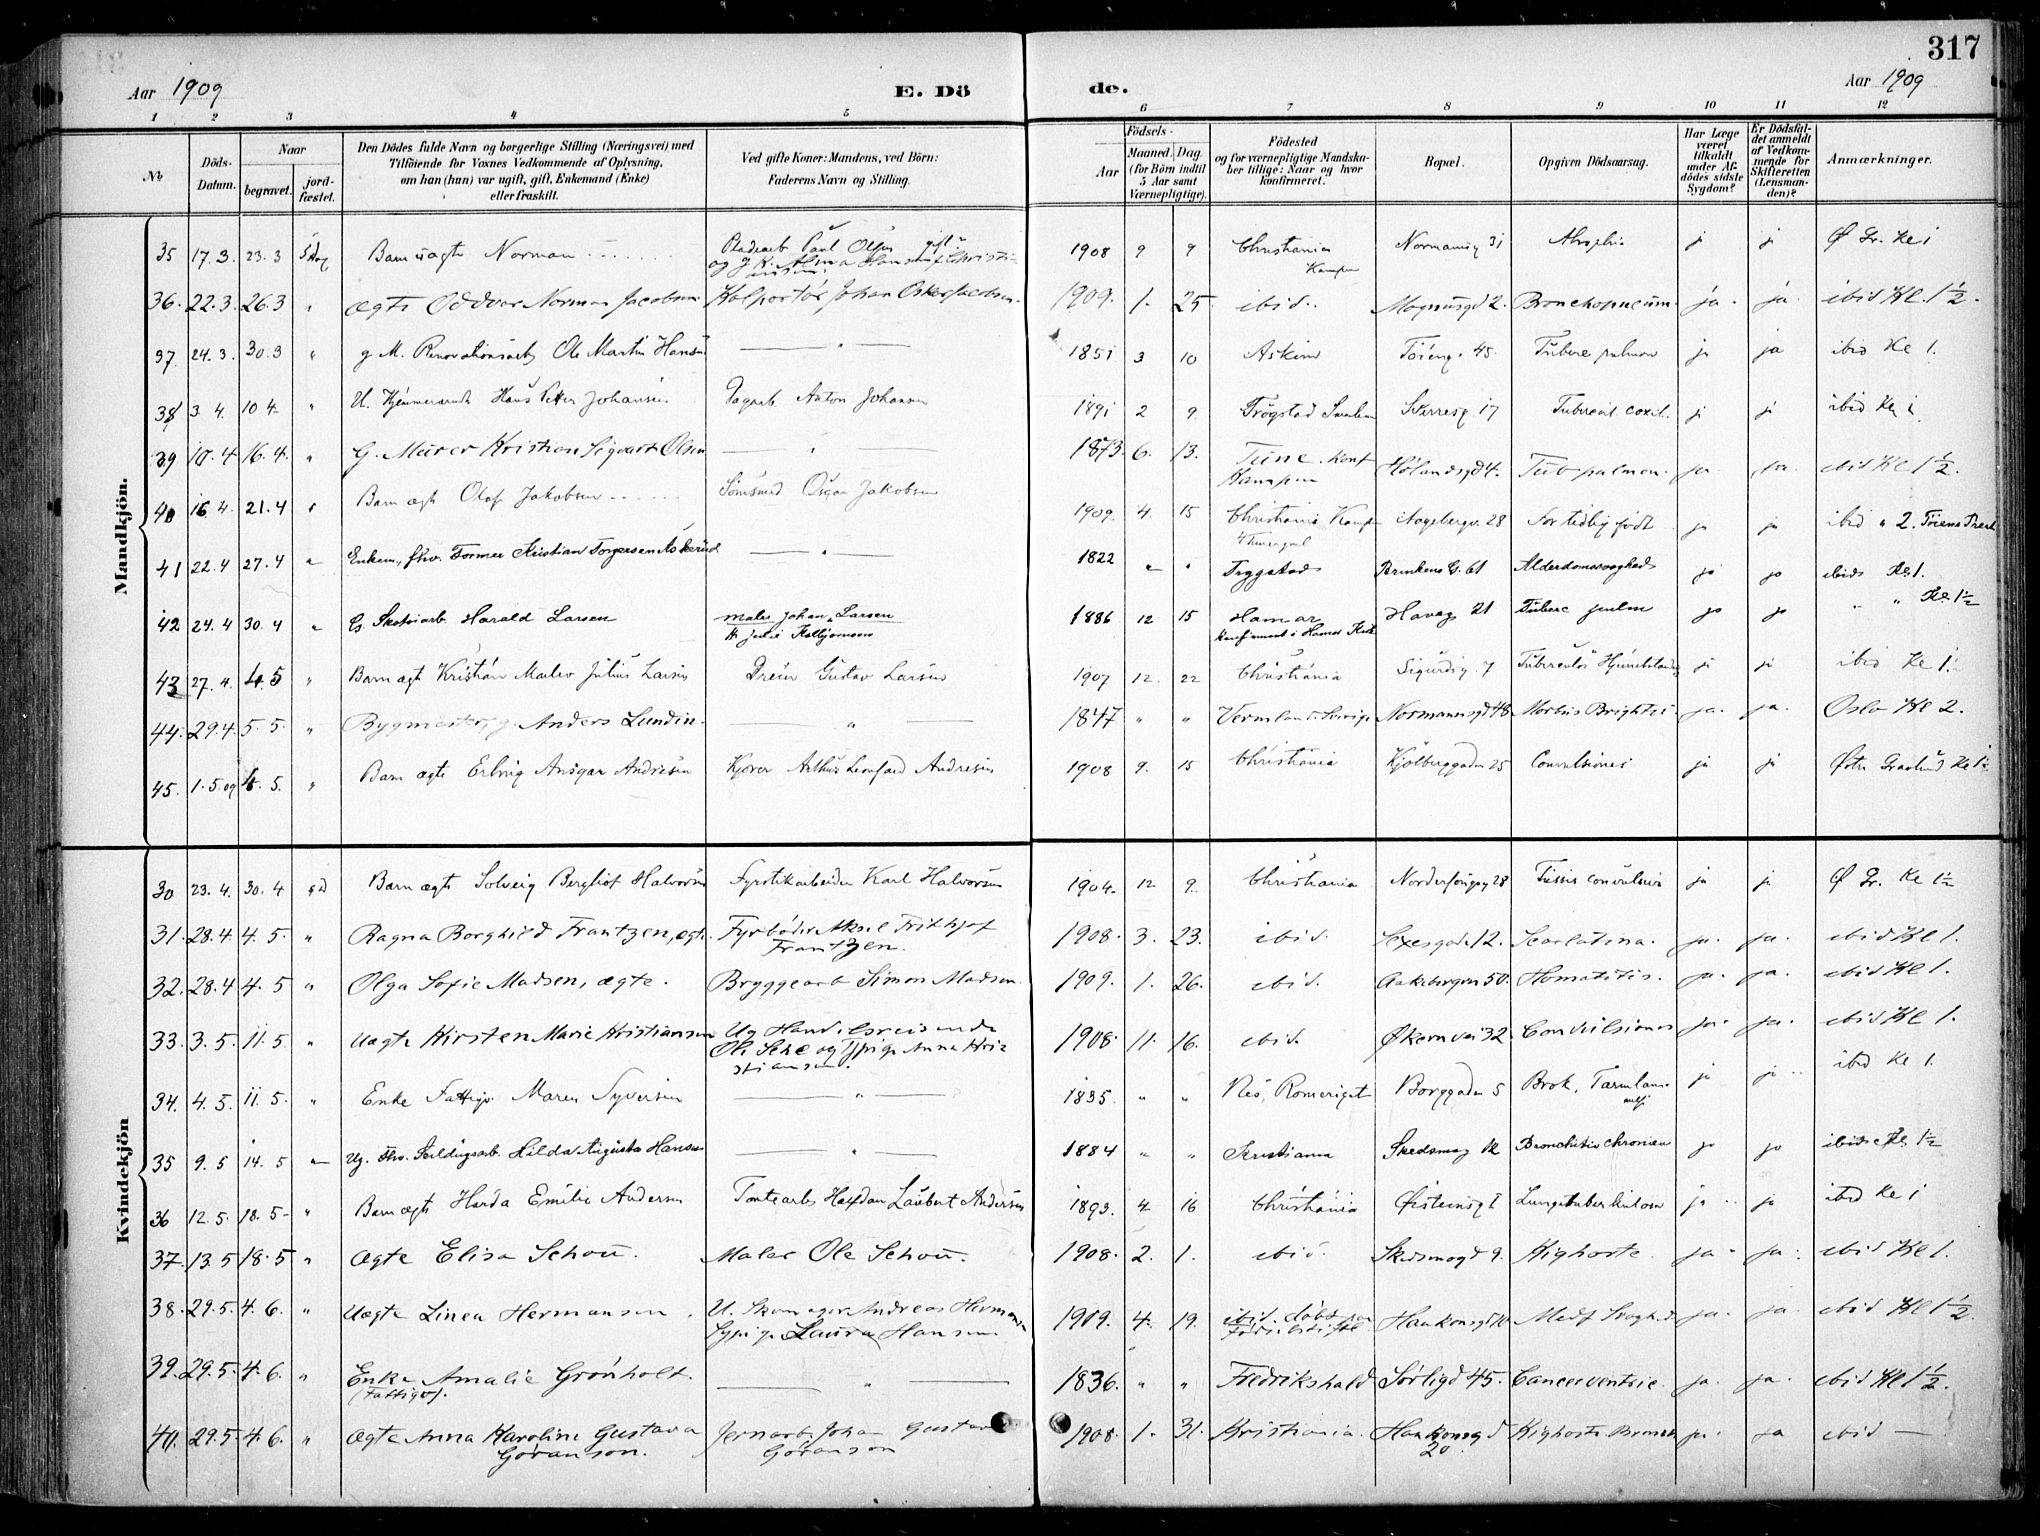 317
Aar 1909 E. Dö de. Aar 1909
1 2 3 4 5 6 7 8 9 10 11 12
No. Döds-Datum. Naar begravet. jord-fæstet. Den Dödes fulde Navn og borgerlige Stilling (Næringsvei) med Tilföiende for Voxnes Vedkommende af Oplysning, om han (hun) var ugift, gift, Enkemand (Enke) eller fraskilt. Ved gifte Koner: Mandens, ved Börn: Faderens Navn og Stilling. Födsels- Aar Maaned. Dag. (for Börn indtil 5 Aar samt Værnepligtige). Födested og for værnepligtige Mandskaber tillige: Naar og hvor konfirmeret. Bopæl. Opgiven Dödsaarsag. Har Læge været tilkaldt under Afdödes sidste Sygdom? Er Dödsfaldet anmeldt af Vedkommende for Skifteretten (Lensmanden)? Anmærkninger.
Mandkjön.
35 17.3. 23.3 Barn uægte Norman Pladearb Paul Olsen gift og J. K. Alma Hansen 1908 9 9 Christiania Kampen Normansg 31 Atrophia ja ja Ø Gr. Kl 1
36. 22.3. 26.3 " Ægte Oddvar Norman Jacobsen Kolportør Johan Oskar Jacobsen. 1909. 1. 25. ibid. Magnusgd 2. Bronchopneum. ja. ja. ibid Kl. 1½.
37. 24.3. 30.3 " g M. Renovationsarb Ole Martin Hansen — " — 1851 3 10 Askim Töieng. 45. Tuberc pulmon ja ja ibid Kl 1.
38 3 4. 10 4. " U. Hans Petter Johansen Dagarb. Anton Johansen 1891 2 9. Trøgstad Sverresg. 17 Tubercul coxit. ja ja ibid Kl 1
39 10.4 16.4. " G. Murer Kristian Sigvart Olsen — " — 1873. 6. 13. Tune. Konf Kampen Hølandsgd 4. Tub pulmon. ja ja. ibid Kl 1½.
40 16.4. 21.4 " Barn ægt Olaf Jakobsen Oscar Jakobsen 1909. 4. 15 Christiania Kampen Aagebergv. 28 For tidlig født ja ja ibid " 2.
41 22.4 27.4 " Enkem., fhv. Former Kristian Torgersen Askerud — " — 1822 " " Trygstad Brinkens G. 61 Alderdomssvaghed ja ja ibid Kl 1.
42 24.4 30.4 " G Skotöiarb Harald Larsen Maler Johan Larsen 1886 12 15 Hamar konfirmert i Hamar Kirke Havag 21 Tuberc pulm ja ja " " Kl 1½
43 27.4. 4.5 " Barn ægt Kristian Malev Julius Larsen Dreier Gustav Larsen 1907 12. 22 Christiania Sigurdsg. 7 ja ja ibid Kl 1.
44. 29.4. 5.5. " Bygmester, g. Anders Lundin. — " — 1847 " " Vermland Sverige Normannsgd 48 Morbus Brightii ja. ja. Oslo Kl 2.
45. 1.5.09 4.5. " Barn ægte Erling Ansgar Andresen Kjører Arthur Leonard Andresen 1908 9. 15 Christiania Kjölberggaden 25 Convulsiones ja ja Østre Gravlund Kl 1½
Kvindekjön
30 23.4. 30.4 Barn ægte Solveig Bergliot Halvorsen Fyrstikarbeider Karl Halvorsen 1904. 12 9. Christiania 28 Tussis convulsiva ja ja Ø Gr. Kl 1½
31. 28.4. 4.5. " Ragna Borghild Frantzen, ægte. Fyrbøder Aksel Frithjof Frantzen. 1908. 3. 23. ibid. Sexesgade 12. Scarlatina. ja. ja. ibid Kl 1.
32. 28.4 4.5 " Olga Sofie Madsen, ægte. Bryggearb Simon Madsen. 1909. 1. 26. ibid. Aakebergvn 50. ja. ja. ibid Kl 1.
33. 3.5. 11.5 " Uægte Kirsten Marie Kristiansen Ug Handelsreisende Ole og Typige Anna Kristiansen. 1908. 11. 16. ibid. Økernvei 32 Convulsiones ja. ja. ibid Kl 1.
34. 4.5. 11.5. " Enke Fattigv. Maren Syversen — " — 1835. " " Nes, Romeriget Borggaden 5 Brok, Tarmlam ja ja ibid Kl 1.
35 9.5 14.5 " Ug. Fhv. Hilda Augusta Hansen — " — 1884 " " Kristiania Skedsmog 12 Bronchitis chronica ja ja ibid Kl 1½
36 12.5. 18.5 " Barn ægte Harda Emilie Andersen Tomtearb Halfdan Laubert Andersen 1893. 4 16 Christiania Øisteinsg 1 Lungetuberkulose ja ja ibid Kl 1
37. 13.5 18.5 " Ægte Elisa Schou. Maler Ole Schou. 1908. 2. 1. ibid. Skedsmogd 9. Kighoste. ja. ja. ibid Kl 1.
38. 29.5. 4.6. " Uægte Linea Hermansen. U. Skomager Andreas Hermansen Sypige Laura Hansen 1909. 4. 19. ibid. døbt paa Haakonsgd 10 Medf Svaghed ja. ja. ibid Kl 1½
39. 29.5. 4.6. " Enke Amalie Grønholt. (Fattigv). — " — 1836. " " Fredrikshald Sørligd 45. Cancer ventric. ja. ja. ibid Kl 1½.
40. 29.5 4.6. " Ægte Anna Karoline Gustava Göranson. Jernarb. Johan Gustav Göranson 1908. 1. 31. Kristiania. Haakonsgd 20. Kighoste ja. ja ibid —